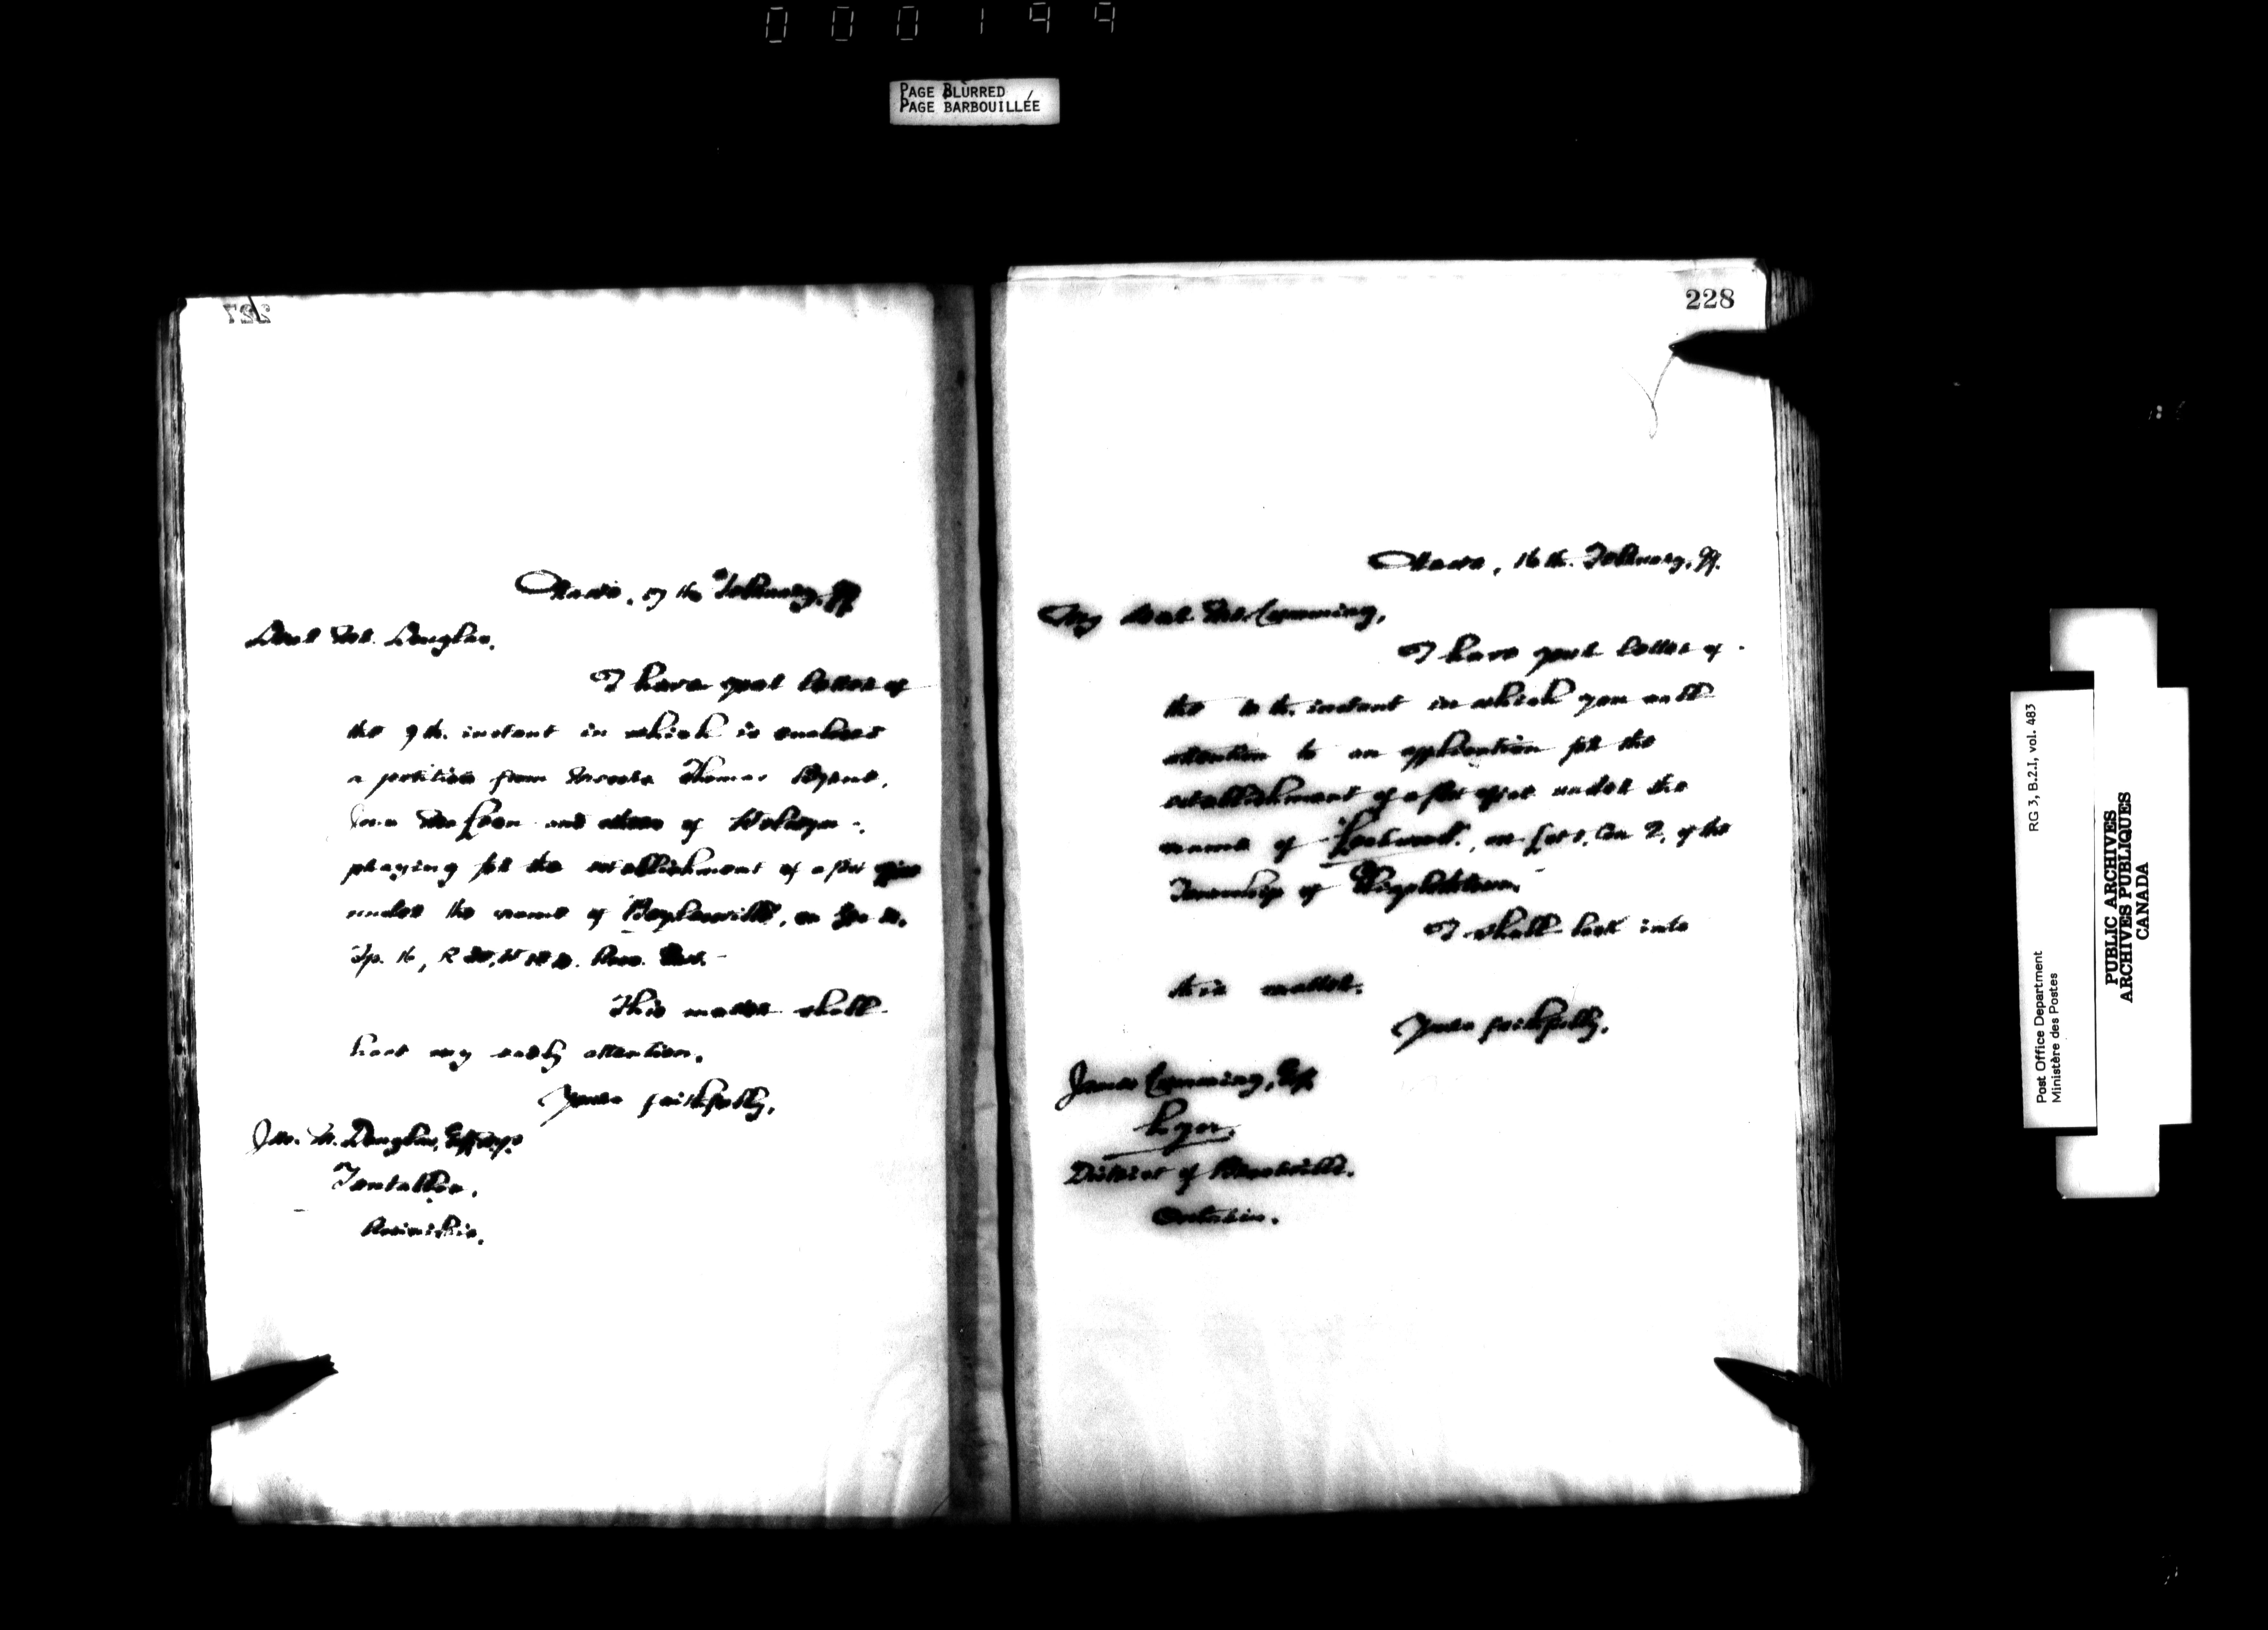 000199
PAGE BLURRED
PAGE BARBOUILLÉE
227
17th February, 99
Dear Mr. Douglas,
I have your letter of
the 9th. instant in which is enclosed
a petition from Messrs Thomas
and others of
praying for the establishment of a post office
under the name of
Tp. 16, R
This matter shall
have my early attention.
Yours faithfully,
Jas. M. Douglas, Esq., M.P.
Tantallon,
Assiniboia.
228
16th. February, 99.
My dear Mr. Cumming,
I have your letter of
the instant in which you call
attention to an application for the
establishment of a post office under the
name of on Lot 1, Con 2, of the
Township of
I shall look into
this matter.
Yours faithfully,
James Cumming, Esq
Lyn,
District of Brockville,
Ontario.
RG 3, B.2.1, vol. 483
Post Office Department
Ministère des Postes
PUBLIC ARCHIVES
ARCHIVES PUBLIQUES
CANADA